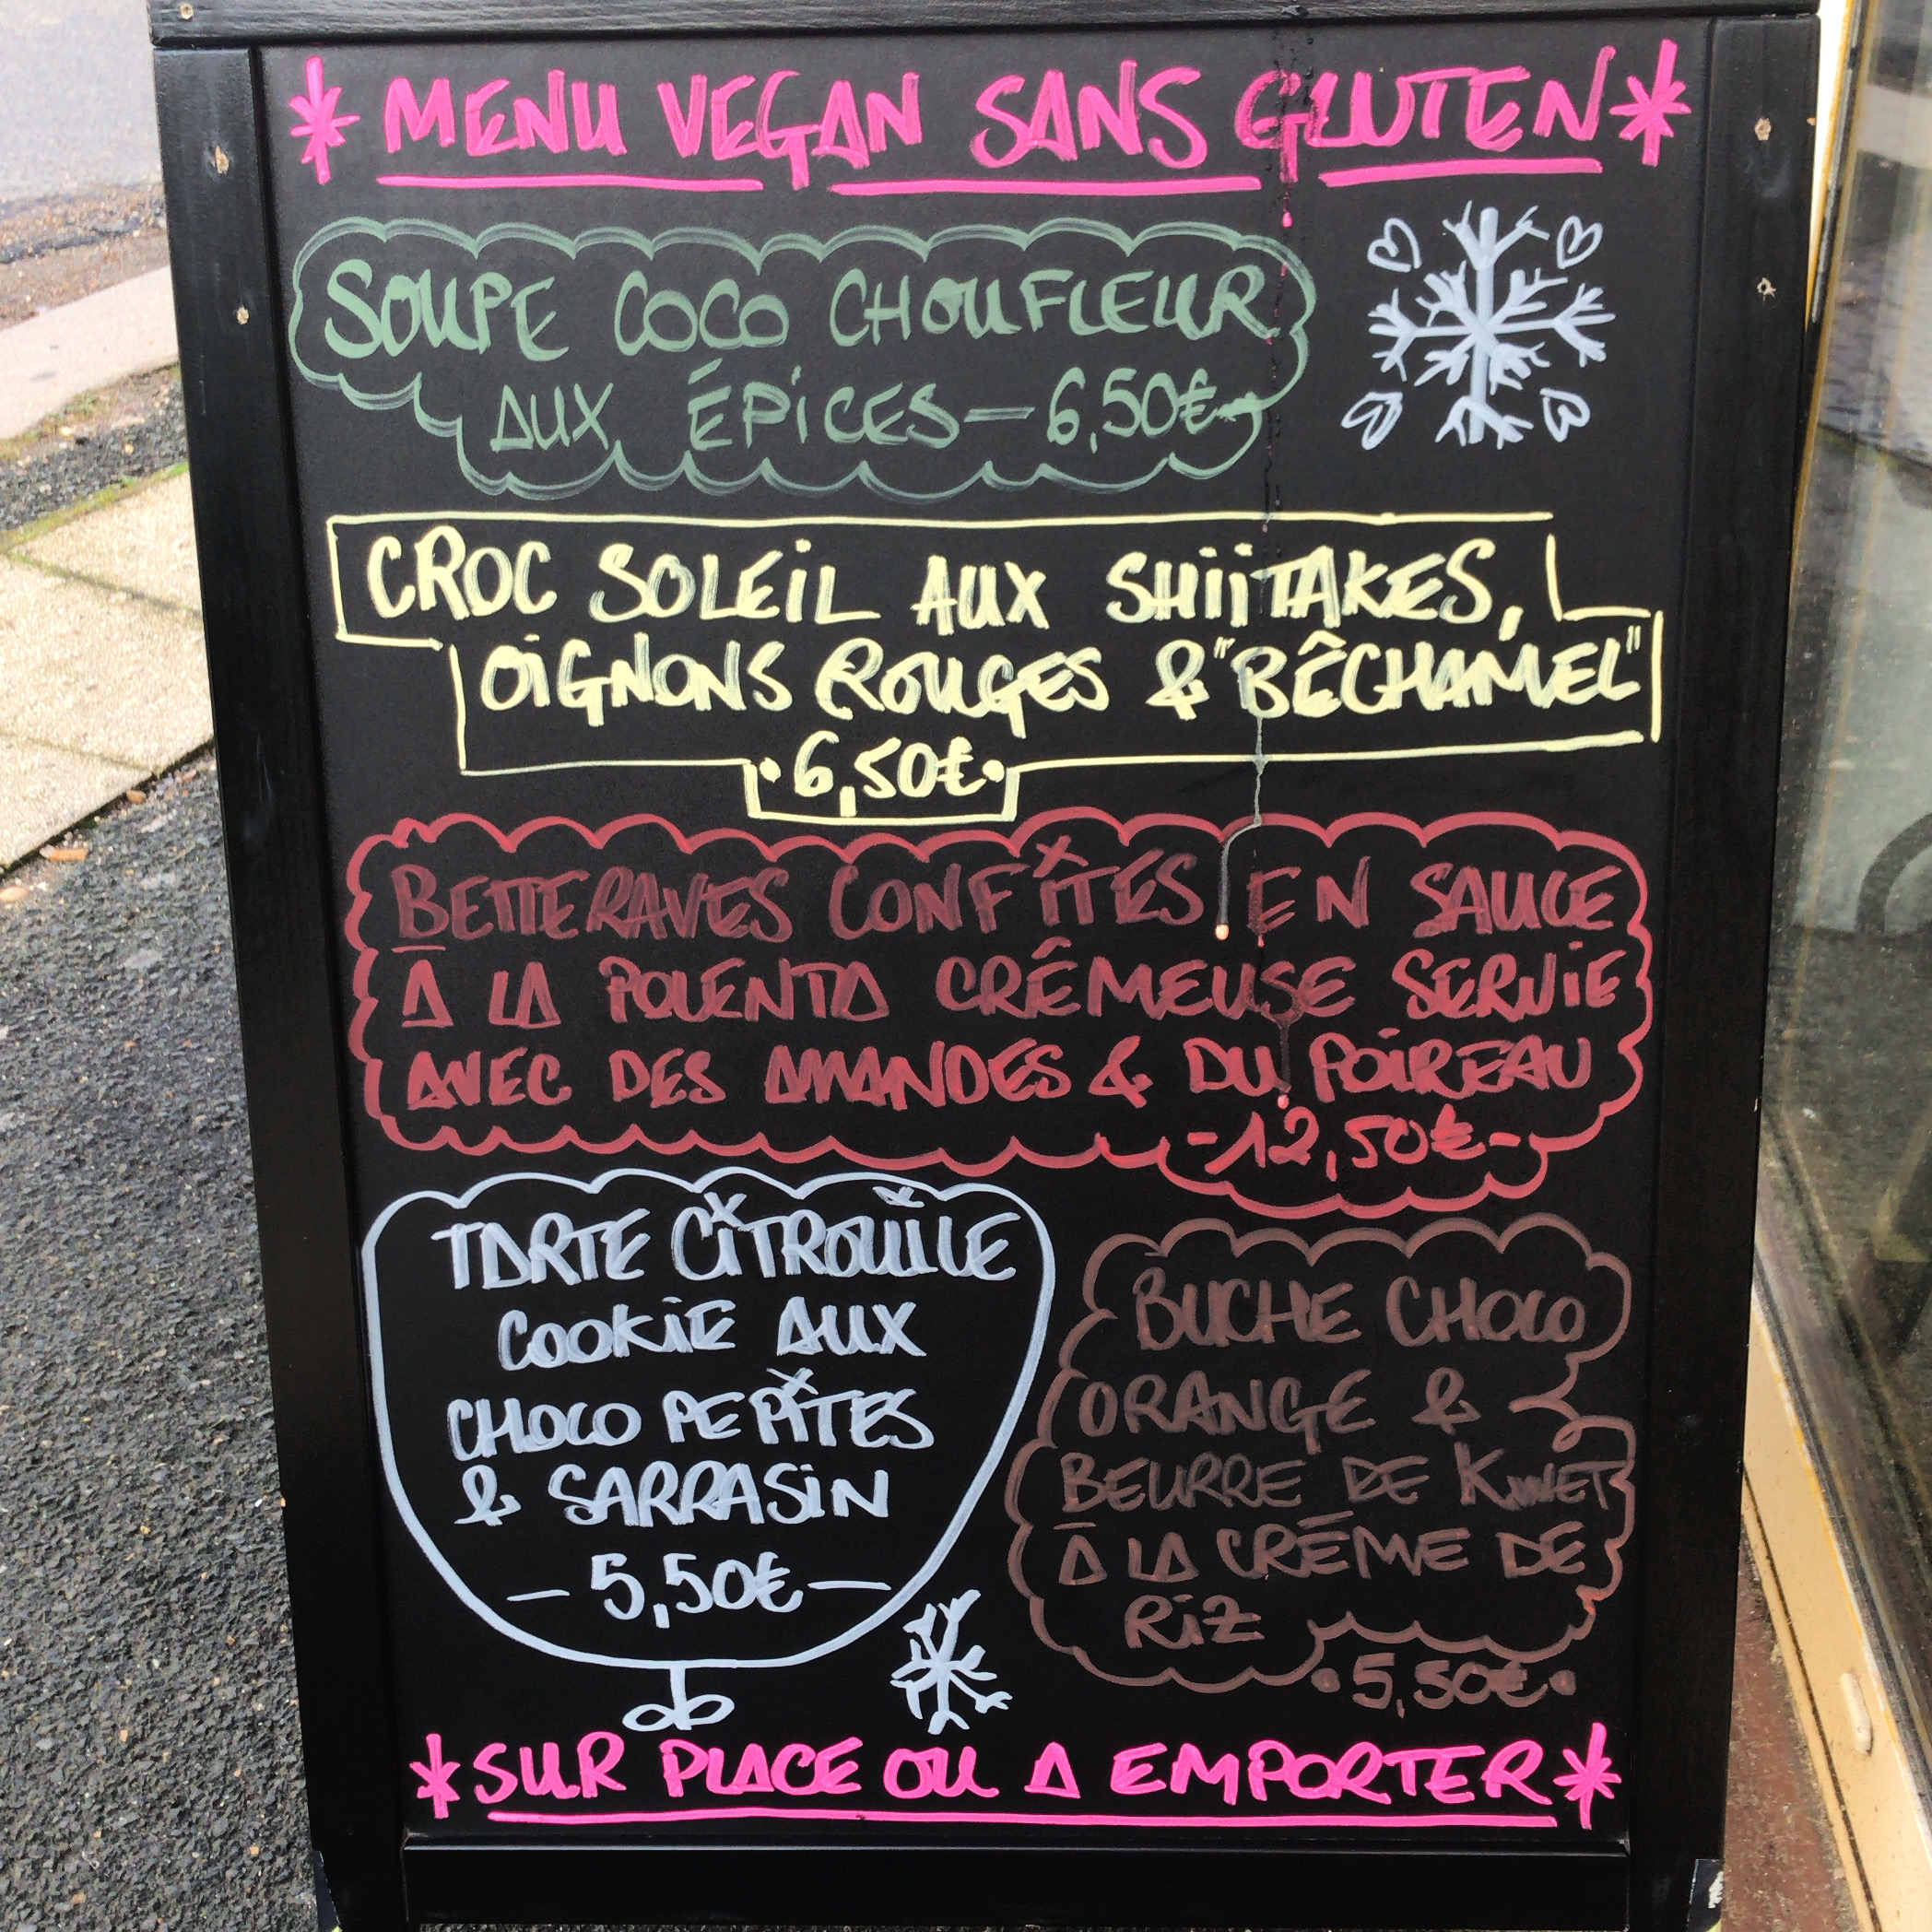 * MENU VEGAN SANS GLUTEN *
SOUPE COCO CHOUFLEUR
AUX ÉPICES — 6,50€
CROC SOLEIL AUX SHIITAKES,
OIGNONS ROUGES & "BÊCHAMEL"
• 6,50€ •
BETTERAVES CONFITES EN SAUCE
À LA POLENTA CRÉMEUSE SERVIE
AVEC DES AMANDES & DU POIREAU
-12,50€-
TARTE CITROUILLE
COOKIE AUX
CHOCO PEPITES
& SARRASIN
— 5,50€ —
BUCHE CHOCO
ORANGE &
BEURRE DE
À LA CRÉME DE
RIZ
• 5,50€ •
* SUR PLACE OU A EMPORTER *